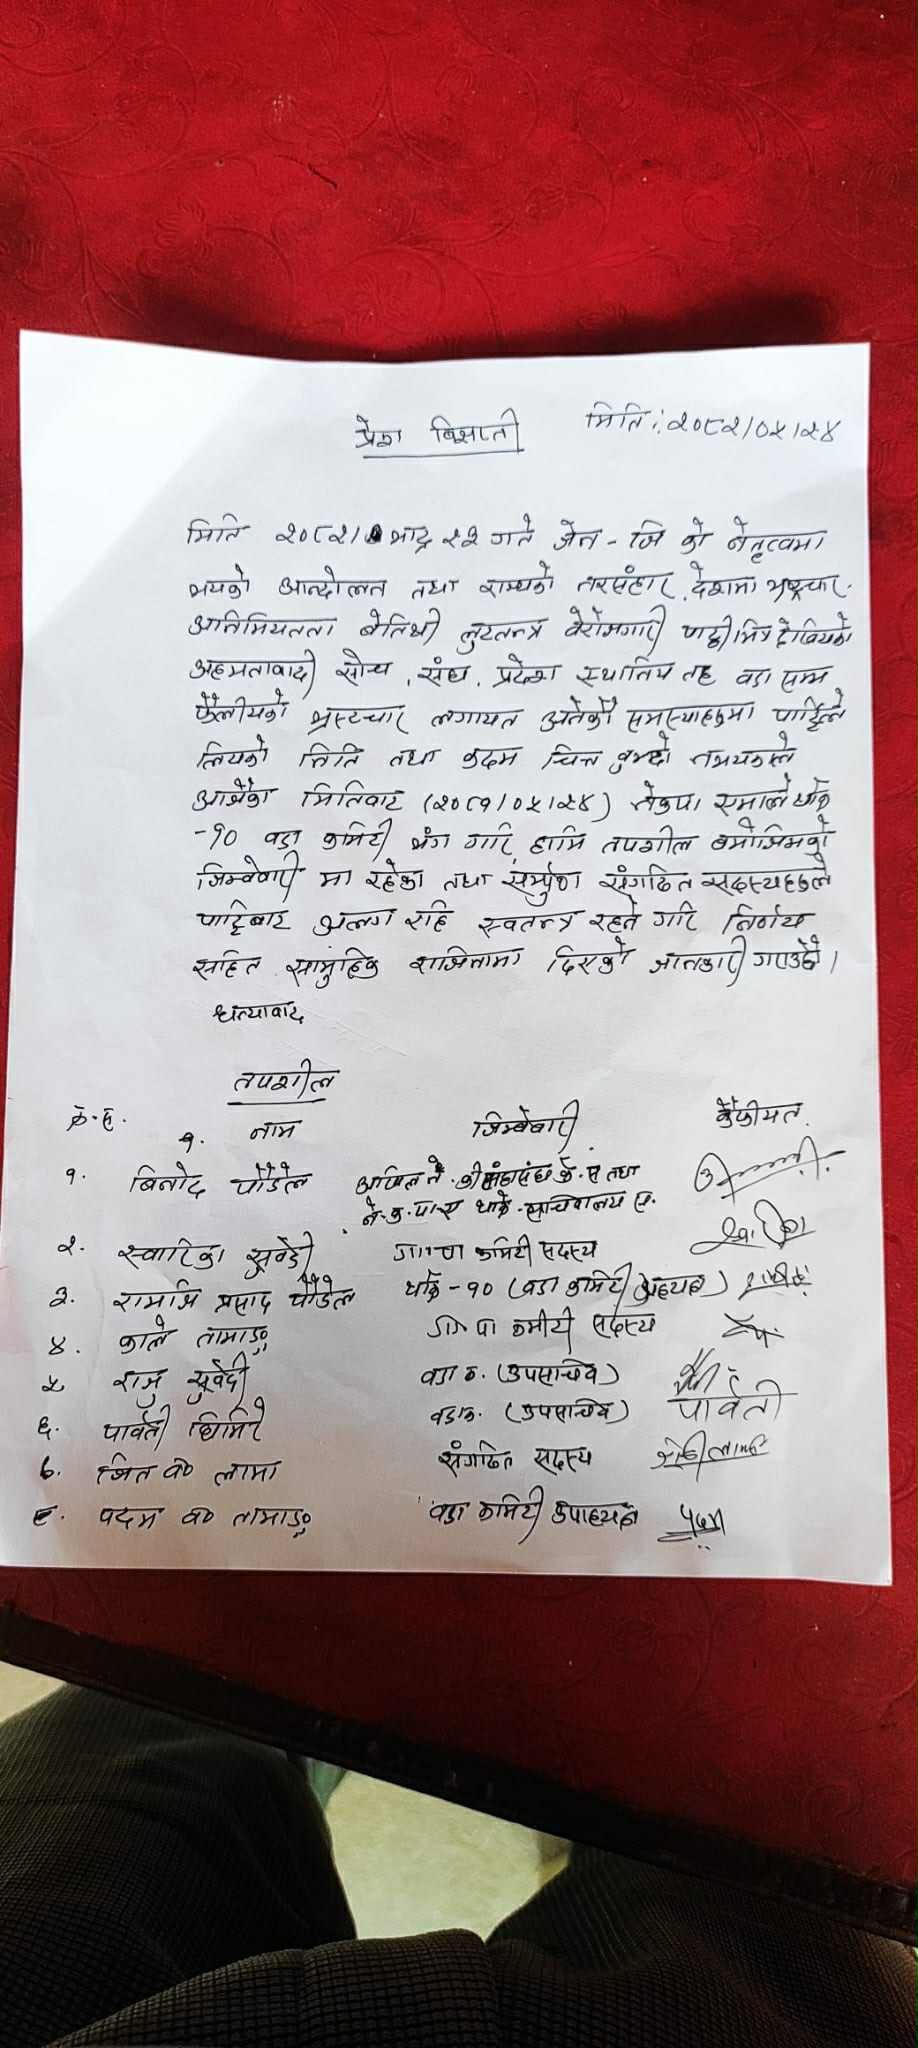 प्रेश बिज्ञप्ती
मिति: २०८२/०५/२४
मिति २०८२/ भाद्र २३ गते जेन-जि को नेतृत्वमा
भयको आन्दोलन तथा राज्यको नरसंहार, देशमा भ्रष्ट्रचार.
अनिमियतता बेतिथी लुटतन्त्र वेरोजगारी पार्टी भित्र देखियेको
अहमतावादी सोच, संघ, प्रदेश स्थानिय तह वडा सम्म
फैलीयको भ्रस्टचार लगायत अनेकौ समस्याहरुमा पार्टिले
लियको निति तथा कदम चित्त बुझ्दो नभयकाले
आजैका मितिबाट (२०८१/०५/२४) नेकपा एमाले थाक्रे
-१० वडा कमिटी भंग गरि, हामि तपशील बमोजिमको
जिम्वेवारी मा रहेका तथा सम्पुर्ण संगठित सदस्यहरुले
पार्टिबाट अलग रहि स्वतन्त्र रहने गरि निर्णय
सहित सामुहिक राजिनामा दिएको जानकारी गराउछौ।
धन्यावाद
तपशील
क्र.स. १. नाम जिम्वेवारी कैफीयत.
१. बिनोद पौडेल अखिल ने. के.स तथा
ने.क.पा.ए थाक्रे.सचिवालय स.
२. स्वारिका सुवेदी गा पा कमिटी सदस्य
३. रामजि प्रसाद पौडेल थाक्रे-१० (वडा कमिटी अध्यक्ष)
४. काले तामाङ गा पा कमीटी सदस्य
५ राजु सुवेदी वडा क. (उपसचिव)
६. पार्वती घिमिरे वडा क. (उपसचिव) पार्वती
७. जित ब० लामा संगठित सदस्य
८. पदम ब० तामाङ वडा कमिटी उपाध्यक्ष पदम